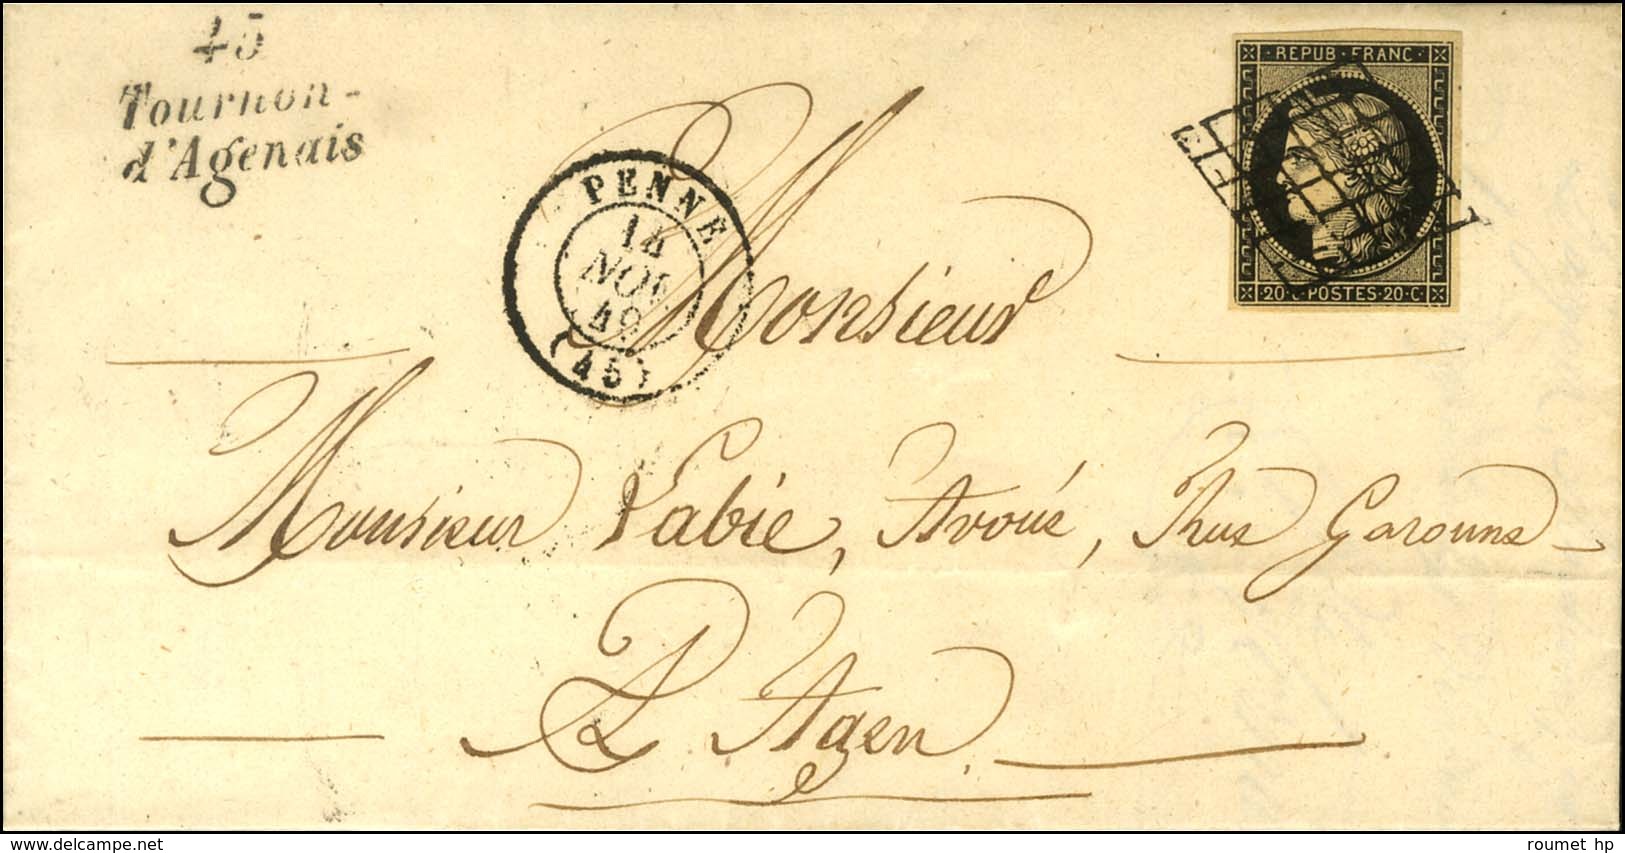 45
Tournon-
d'Agenais
PENNE
14
NOV.
49
(45)
REPUB·FRANC·
20·C·POSTES·20·C·
Monsieur
Monsieur Labie, Avoué, Rue Garonne
A Agen.
delcampe.net
roumet hp